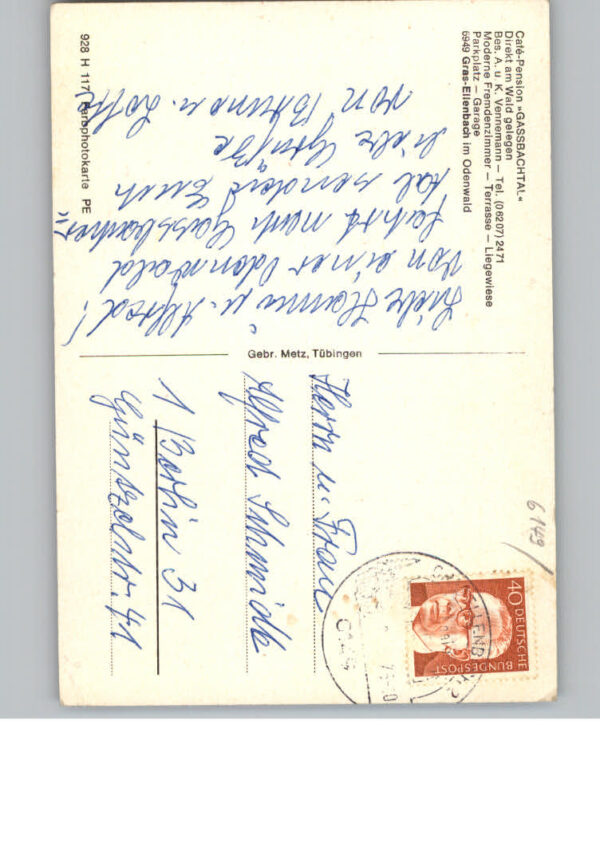 Café-Pension »GASSBACHTAL«
Direkt am Wald gelegen
Bes. A. u. K. Vennemann – Tel. (06207) 2471
Moderne Fremdenzimmer – Terrasse – Liegewiese
Parkplatz – Garage
6949 Gras-Ellenbach im Odenwald
Liebe Hanni u. Alfred!
Von einer Odenwald
fahrt nach Gassbach=
tal senden Euch
viele Grüße
von Bruno u. Lotte
928 H 117 Farbphotokarte PE
Gebr. Metz, Tübingen
6149/
40 DEUTSCHE
BUNDESPOST
Herrn u. Frau
Alfred Schmidt
1 Berlin 31
Güntzelstr. 41